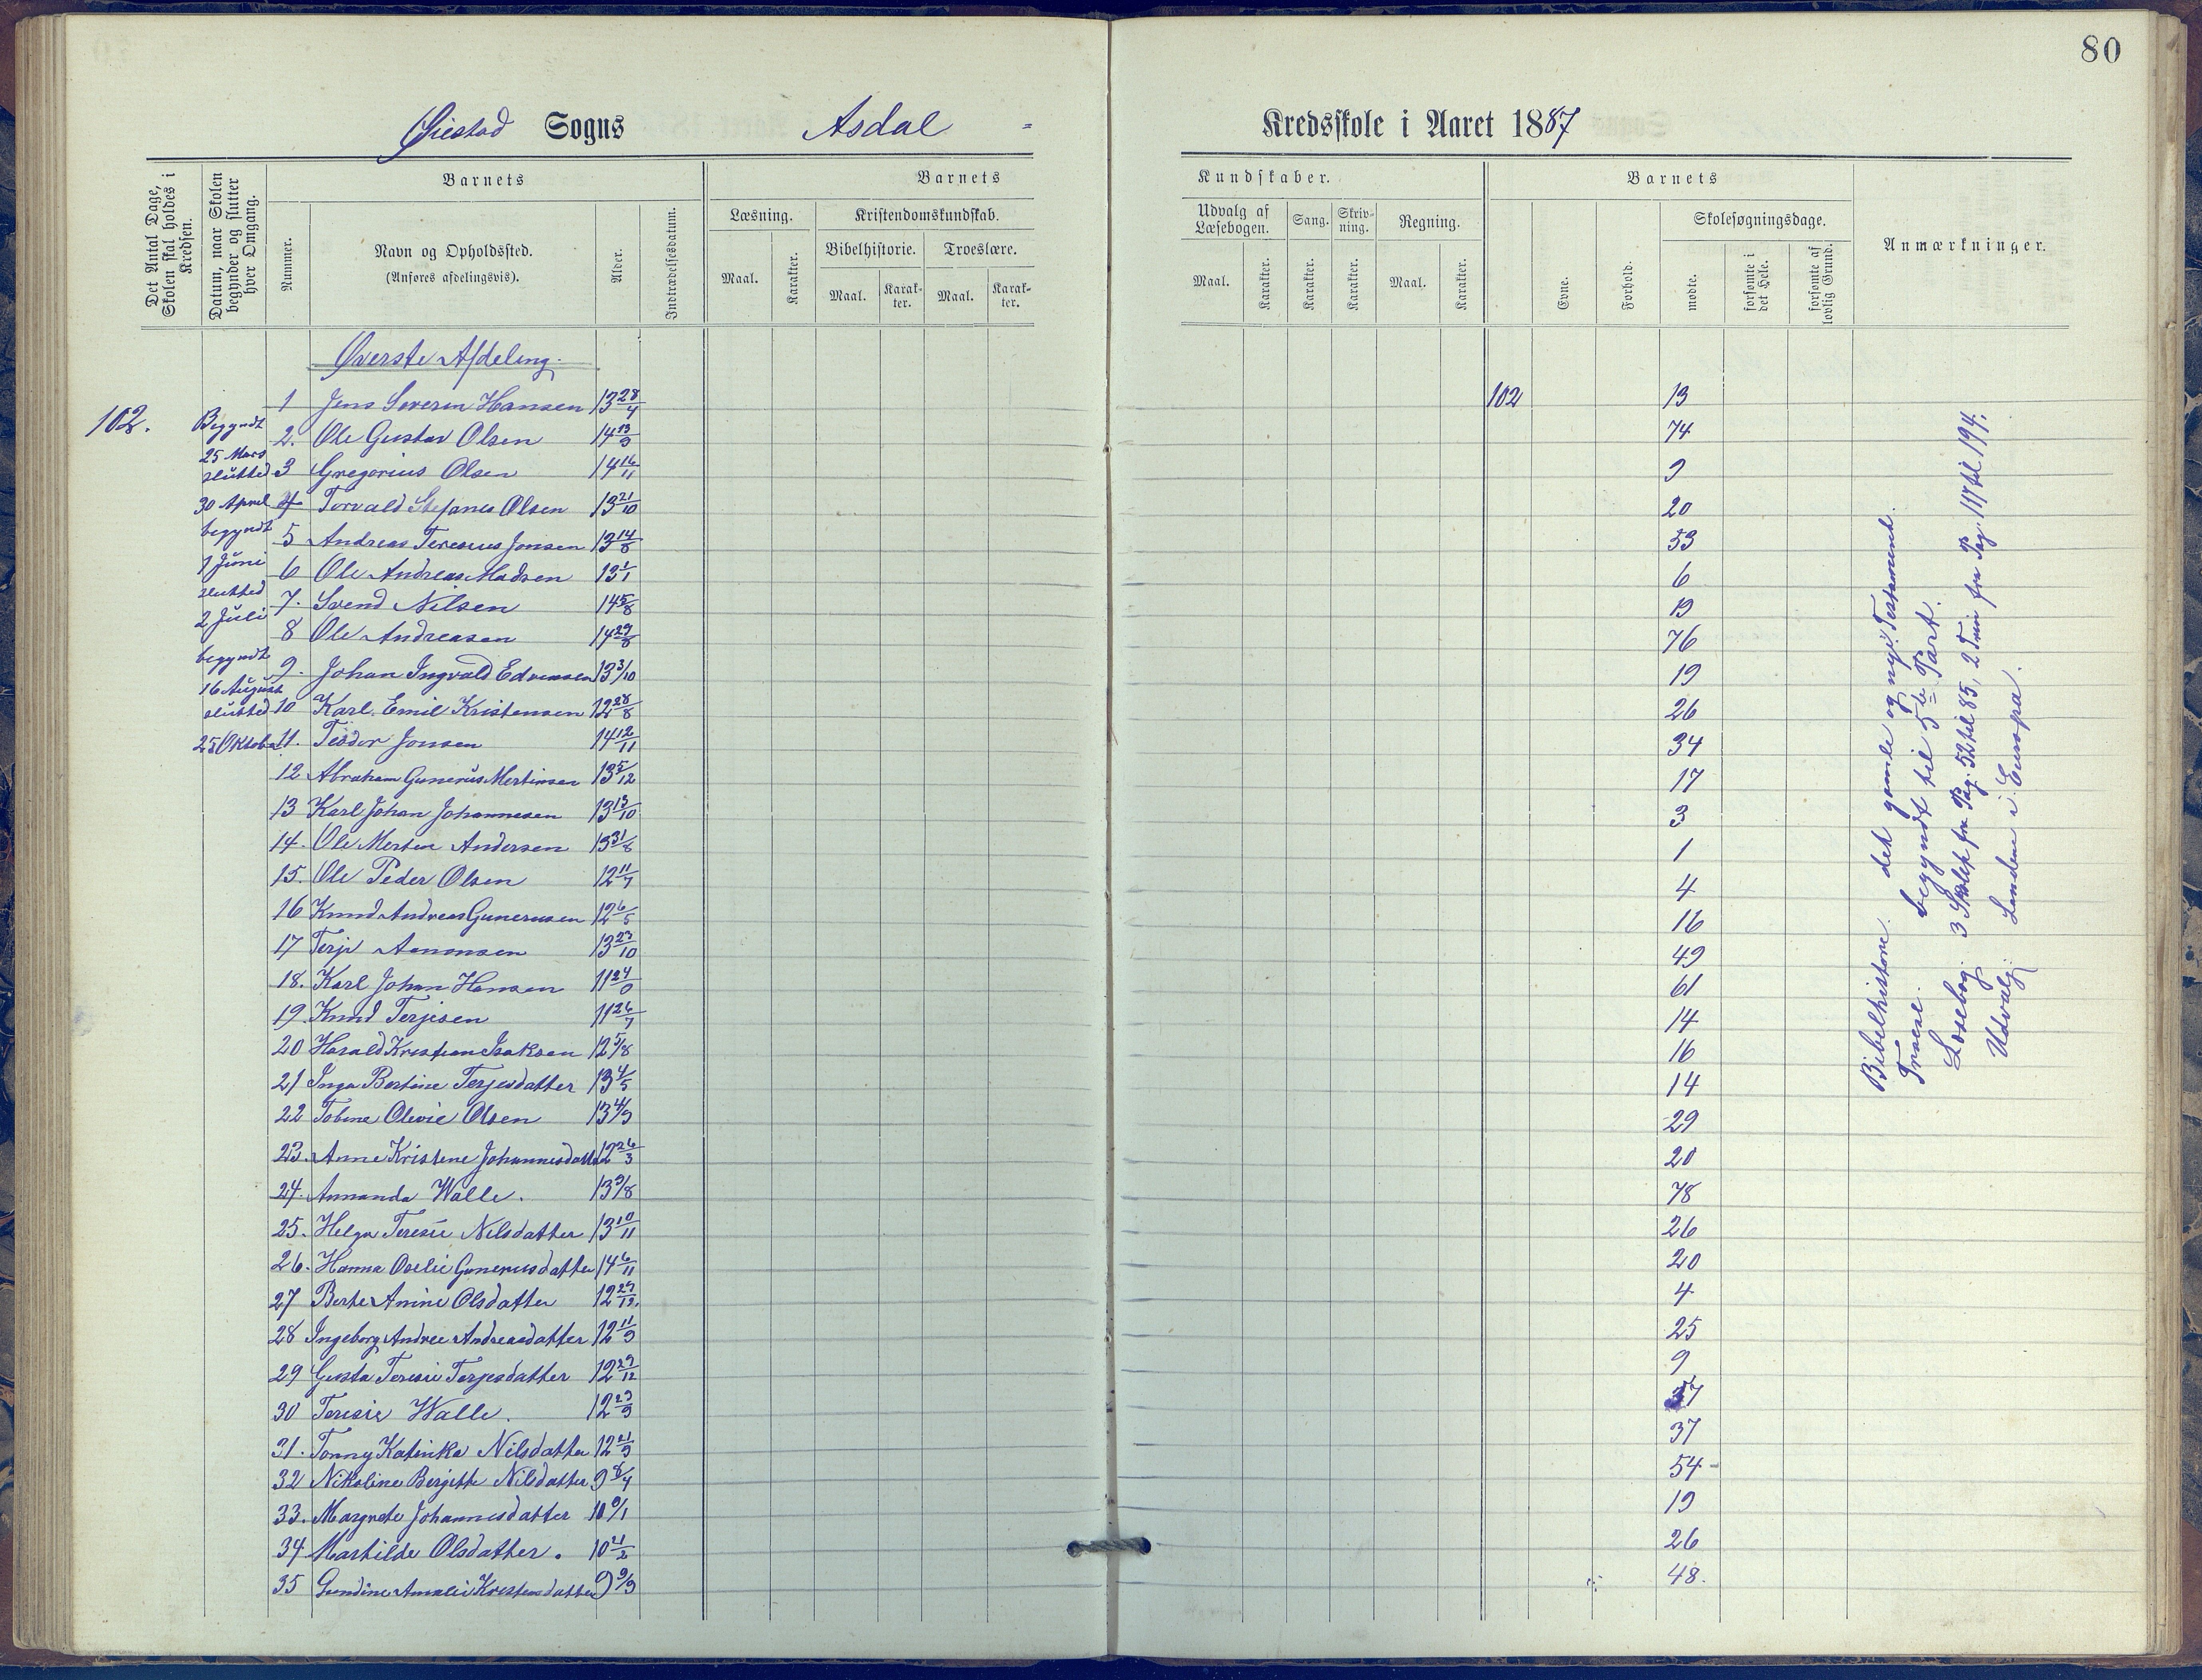 80
Øiestad Sogns Asdal -
Kredsskole i Aaret 1887
Det Antal Dage, Skolen skal holdes i Kredsen.
Datum, naar Skolen begynder og slutter hver Omgang.
Barnets
Nummer.
Navn og Opholdssted.
(Anføres afdelingsvis).
Alder.
Indtrædelsesdatum.
Barnets
Læsning.
Maal.
Karakter.
Kristendomskundskab.
Bibelhistorie.
Maal.
Karakter.
Troeslære.
Maal.
Karakter.
Kundskaber.
Udvalg af Læsebogen.
Maal.
Karakter.
Sang.
Karakter.
Skrivning.
Karakter.
Regning.
Maal.
Karakter.
Barnets
Evne.
Forhold.
Skolesøgningsdage.
mødte.
forsømte i det Hele.
forsømte af lovlig Grund.
Anmærkninger.
Øverste Afdeling.
102.
Begyndt
25 Mars
slutted
30 April
begyndt
1 Juni
slutted
2 Juli
begyndt
16 August
slutted
25 Oktober
1 Jens Severin Hansen 13 28/4 102 13
2. Ole Gustav Olsen 14 13/9 74
3 Gregorius Olsen 14 16/11 9
4 Torvald Stefanes Olsen 13 21/10 20
5 Andreas Teresius Jonsen 13 14/8 53
6 Ole Andreas Madsen 13 1/1 6
7. Svend Nilsen 14 5/8 19
8 Ole Andreasen 14 29/8 76
9. Johan Ingvald Edvensen 13 3/10 19
10 Karl Emil Kristensen 12 28/8 26
11. Teodor Jonsen 14 12/11 34
12 Abraham Gunerius Mertinsen 13 5/12 17
13 Karl Johan Johannesen 13 13/10 3
14. Ole Merten Andersen 13 31/8 1
15. Ole Peder Olsen 12 11/7 4
16 Knud Andreas Gunerusen 12 6/5 16
17 Terje Aanonsen 13 23/10 49
18. Karl Johan Hansen 11 24/0 61
19. Knud Terjesen 11 26/7 14
20 Harald Kristian Isaksen 12 5/8 16
21 Inga Bertine Terjesdatter 13 4/5 14
22 Tobine Olevie Olsen 13 4/9 29
23. Anne Kristene Johannesdatter 12 26/3 20
24. Amanda Walle. 13 3/8 78
25. Helga Teresie Nilsdatter 13 10/11 26
26. Hanna Oselie Gunerusdatter 14 6/11 20
27 Berte Anine Olsdatter 12 29/12. 4
28 Ingeborg Andree Andreasdatter 12 11/9 25
29 Gusta Teresie Terjesdatter 12 29/12 9
30 Teresie Walle. 12 23/9 37
31. Tonny Katinka Nilsdatter 12 21/9 37
32 Nikoline Bergitte Nilsdatter 9 8/4 54
33. Margrete Johannesdatter 10 9/1 19
34 Martilde Olsdatter. 10 21/2 26
35 Gundine Amalie Kristensdatter 9 9/9 48.
Bibelhistore. det gamle og nye Testamente.
Troesl. begyndt til 5te Part.
Læsebog. 3 Skolet fra Pag. 52 til 85, 2 Trin fra Pag. 117 til 194.
Udvalg: Landene i Europa.